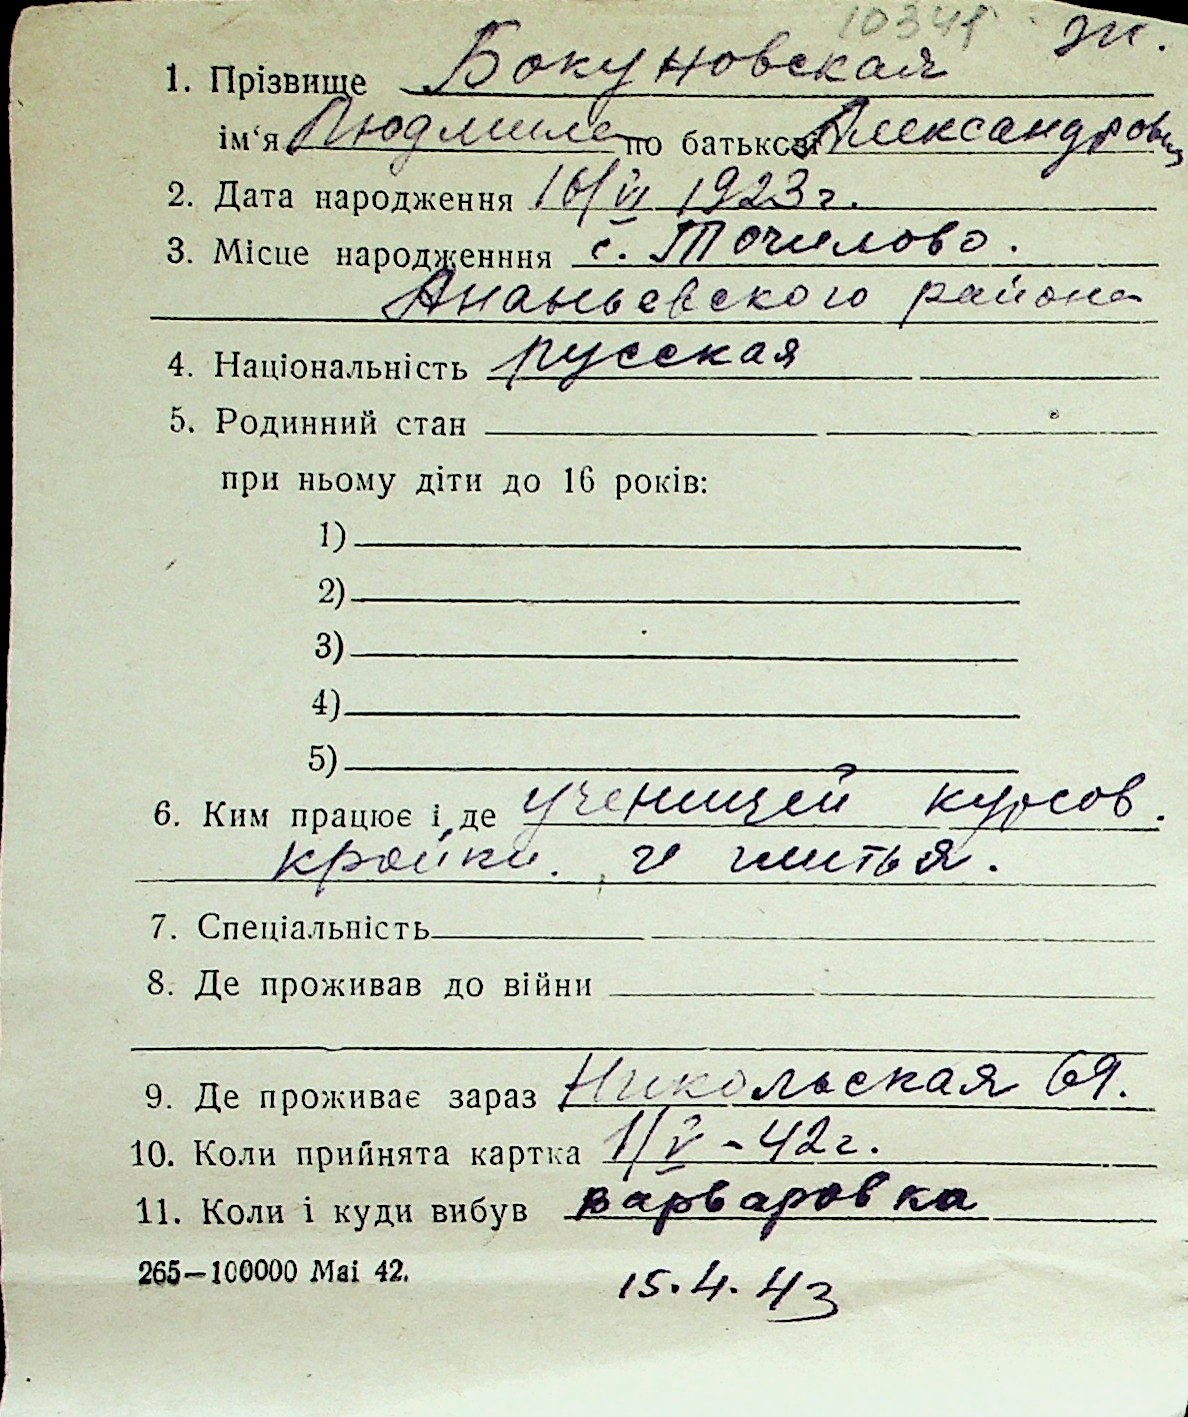 10341 ж.
1. Прізвище Бокуновская
ім‘я Людмила по батькові Александровна
2. Дата народження 16/VI 1923 г.
3. Місце народженння с. Точилово.
Ананьевского района
4. Національність русская
5. Родинний стан
при ньому діти до 16 років:
1)
2)
3)
4)
5)
6. Ким працює і де ученицей курсов.
кройки. и шитья.
7. Спеціальність
8. Де проживав до війни
9. Де проживає зараз Никольская 69.
10. Коли прийнята картка 1/V - 42 г.
11. Коли і куди вибув варваровка
265—100000 Mai 42.
15.4.43